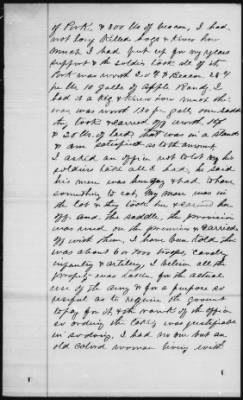 of Pork, & 300 lbs of Beacon, I had
not long killed hogs & knew how
much I had put up for my years
support & the soldiers took all of it
Pork was worth 20¢ & Beacon 25¢
per lb 10 galls of Apple Brandy, I
had it a keg & knew how much there
was was worth per gall, one saddle
they took & carried off worth
& 20 lbs. of lard, that was in a stand
& am satisfied as to the amount
I asked an officer not to let the
soldiers take all I had, he said
his men was hungry & had to have
something to eat, My mare was in
the lot & they took her & carried her
off and the saddle, the provision
was used on the premises & carried
off with them, I have been told there
was about 60,000 troops, Cavalry
infantry & artilery, I believe all the
property was taken for the actual
use of the army & for a purpose so
useful as to require the goverment
to pay for it & the wants of the officer
so ordering the taking was justifiable
in so doing, I had no one but an
old colord woman living with